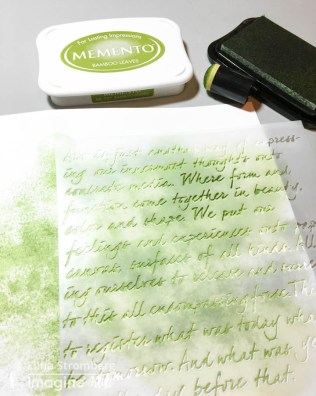 For Lasting Impressions
MEMENTO
BAMBOO LEAVES
Art is just another way of express-
ing our innermost thoughts onto
concrete media. Where form and
function come together in beauty,
color and shape. We put our
feelings and experiences onto
canvas surfaces of all kinds. All
ing ourselves to release and
to this all encompassing force. This
to register what was today
be tomorrow. And what was
day before that.
Elina Stromberg
imagine